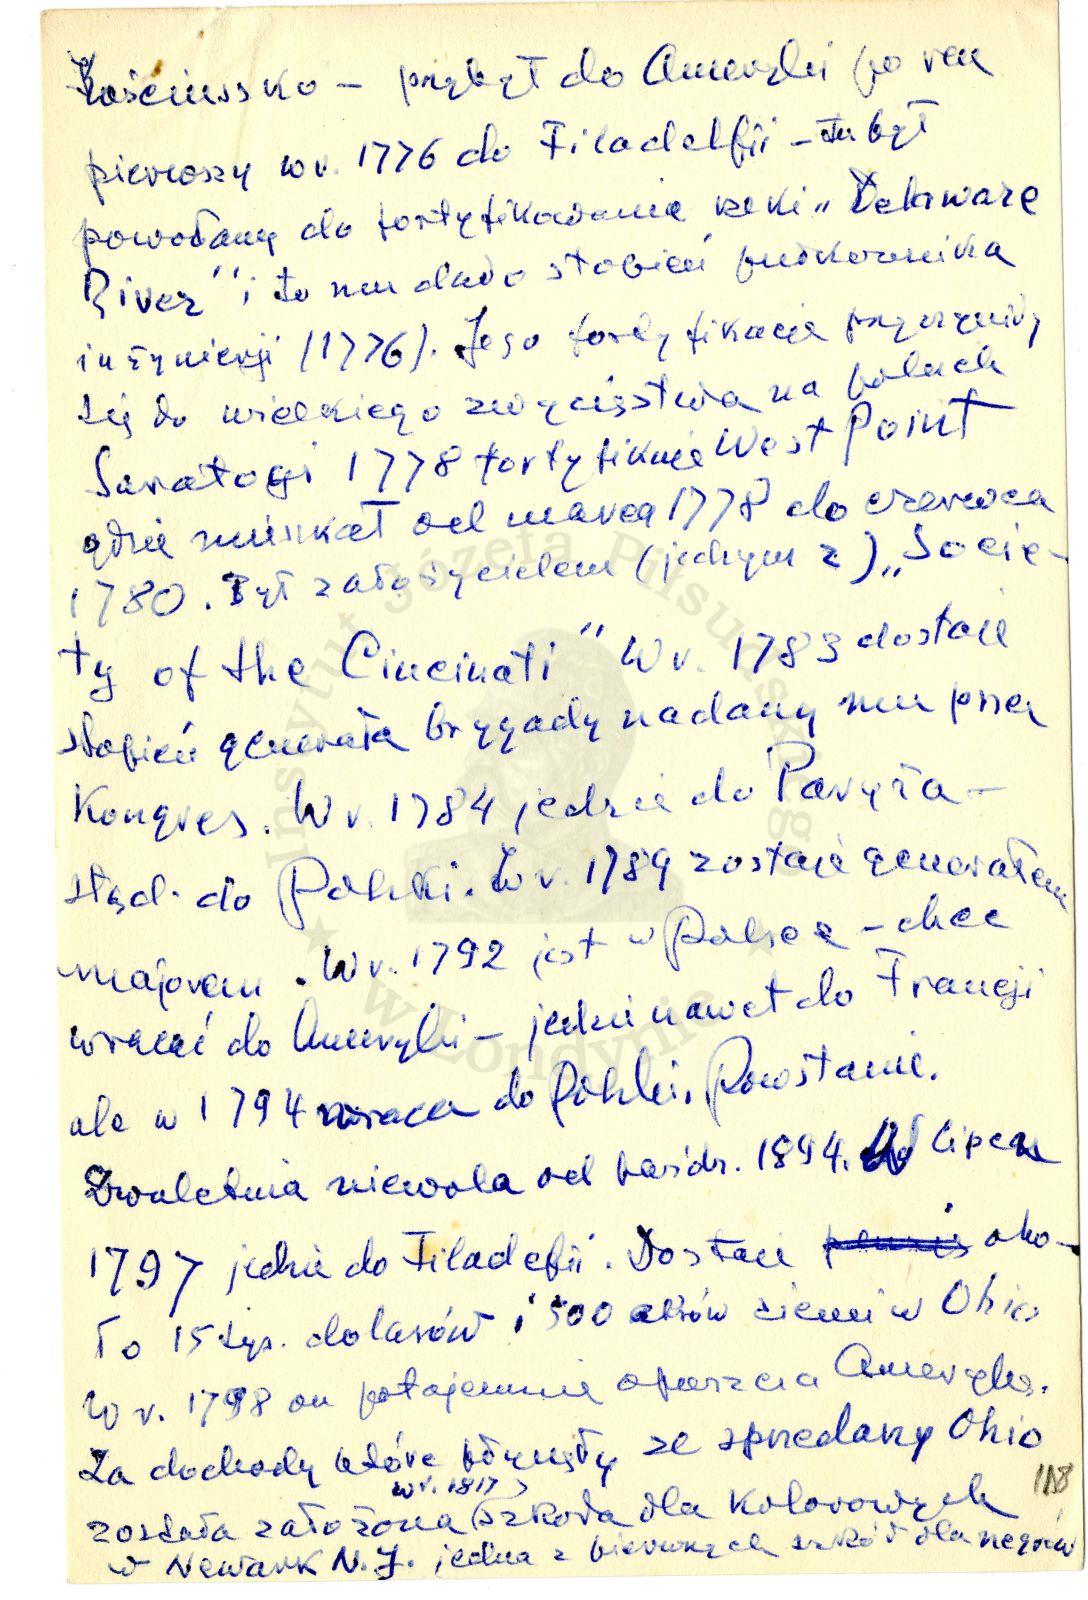 Kościussko – przybył do Ameryki po raz
pierwszy w r. 1776 do Filadelfji – tu był
powołany do fortyfikowania rzeki „Delaware
River" i to mu dało stopień pułkownika
inżynierji (1776). Jego fortyfikacje przyczyniły
się do wielkiego zwycięstwa na polach
Saratogi 1778 fortyfikuje West Point
gdzie mieszkał od marca 1778 do czerwca
1780. Był założycielem (jednym z) „Socie-
ty of the Cincinati" W r. 1783 dostaje
stopień generała brygady nadany mu przez
Kongres. W r. 1784 jedzie do Paryża –
stąd do Polski. W r. 1789 zostaje generałem
majorem. W r. 1792 jest w Polsce – chce
wracać do Ameryki – jedzie nawet do Francji
ale w 1794 wraca do Polski. Powstanie.
Dwuletnia niewola od paźdz. 1894. W lipcu
1797 jedzie do Filadefii. Dostaje pensje oko-
ło 15 tys. dolarów i 500 akrów ziemi w Ohio
W r. 1798 on potajemnie opuszcza Amerykę.
Za dochody które płynęły ze sprzedaży Ohio
w r. 1817
została założona szkoła dla kolorowych
w Newark N.J. jedna z pierwszych szkół dla negrów
118
Instytut Józefa Piłsudskiego
w Londynie